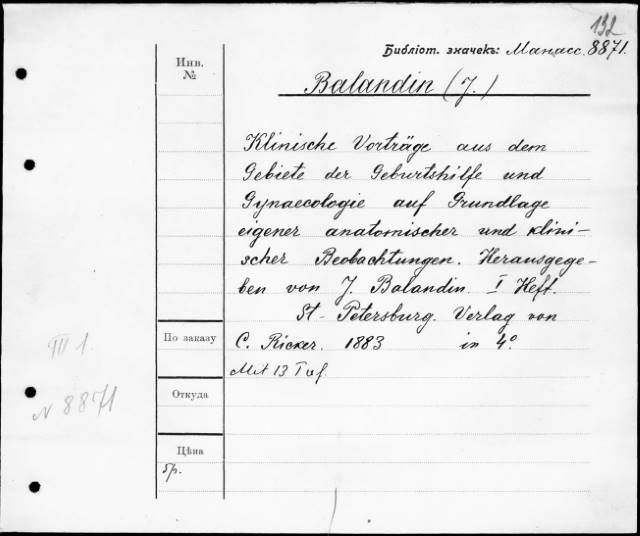 132
Библіот. значекъ: Манасс. 8871.
Инв.
№
Balandin (J.)
Klinische Vorträge aus dem
Gebiete der Geburtshilfe und
Gynaecologie auf Grundlage
eigener anatomischer und klini-
scher Beobachtungen. Herausgege-
ben von J. Balandin. I Heft.
St-Petersburg. Verlag von
По заказу
C. Ricker. 1883 in 4°
Mit 13 Taf.
Откуда
Цѣна
бр.
III 1.
N 8871